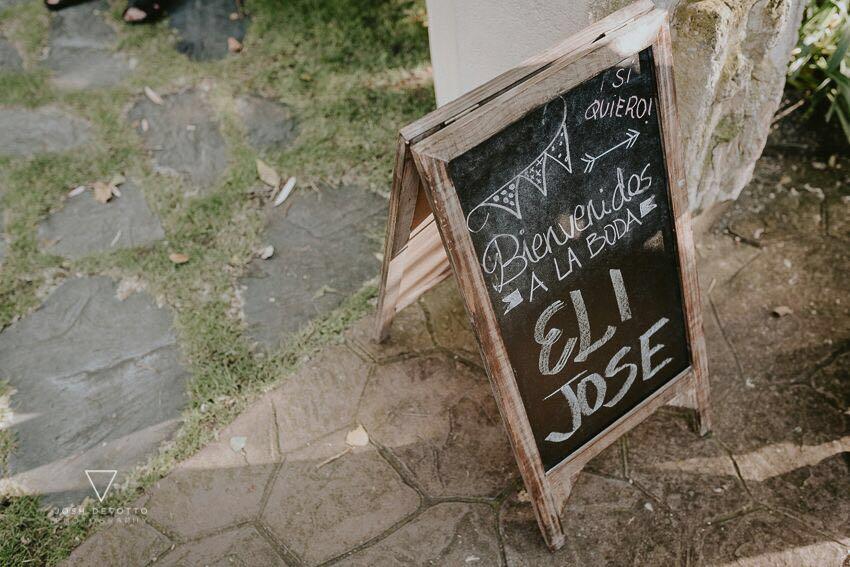 ¡SI
QUIERO!
Bienvenidos
A LA BODA
ELI
JOSE
JOSH DEVOTTO
PHOTOGRAPHY